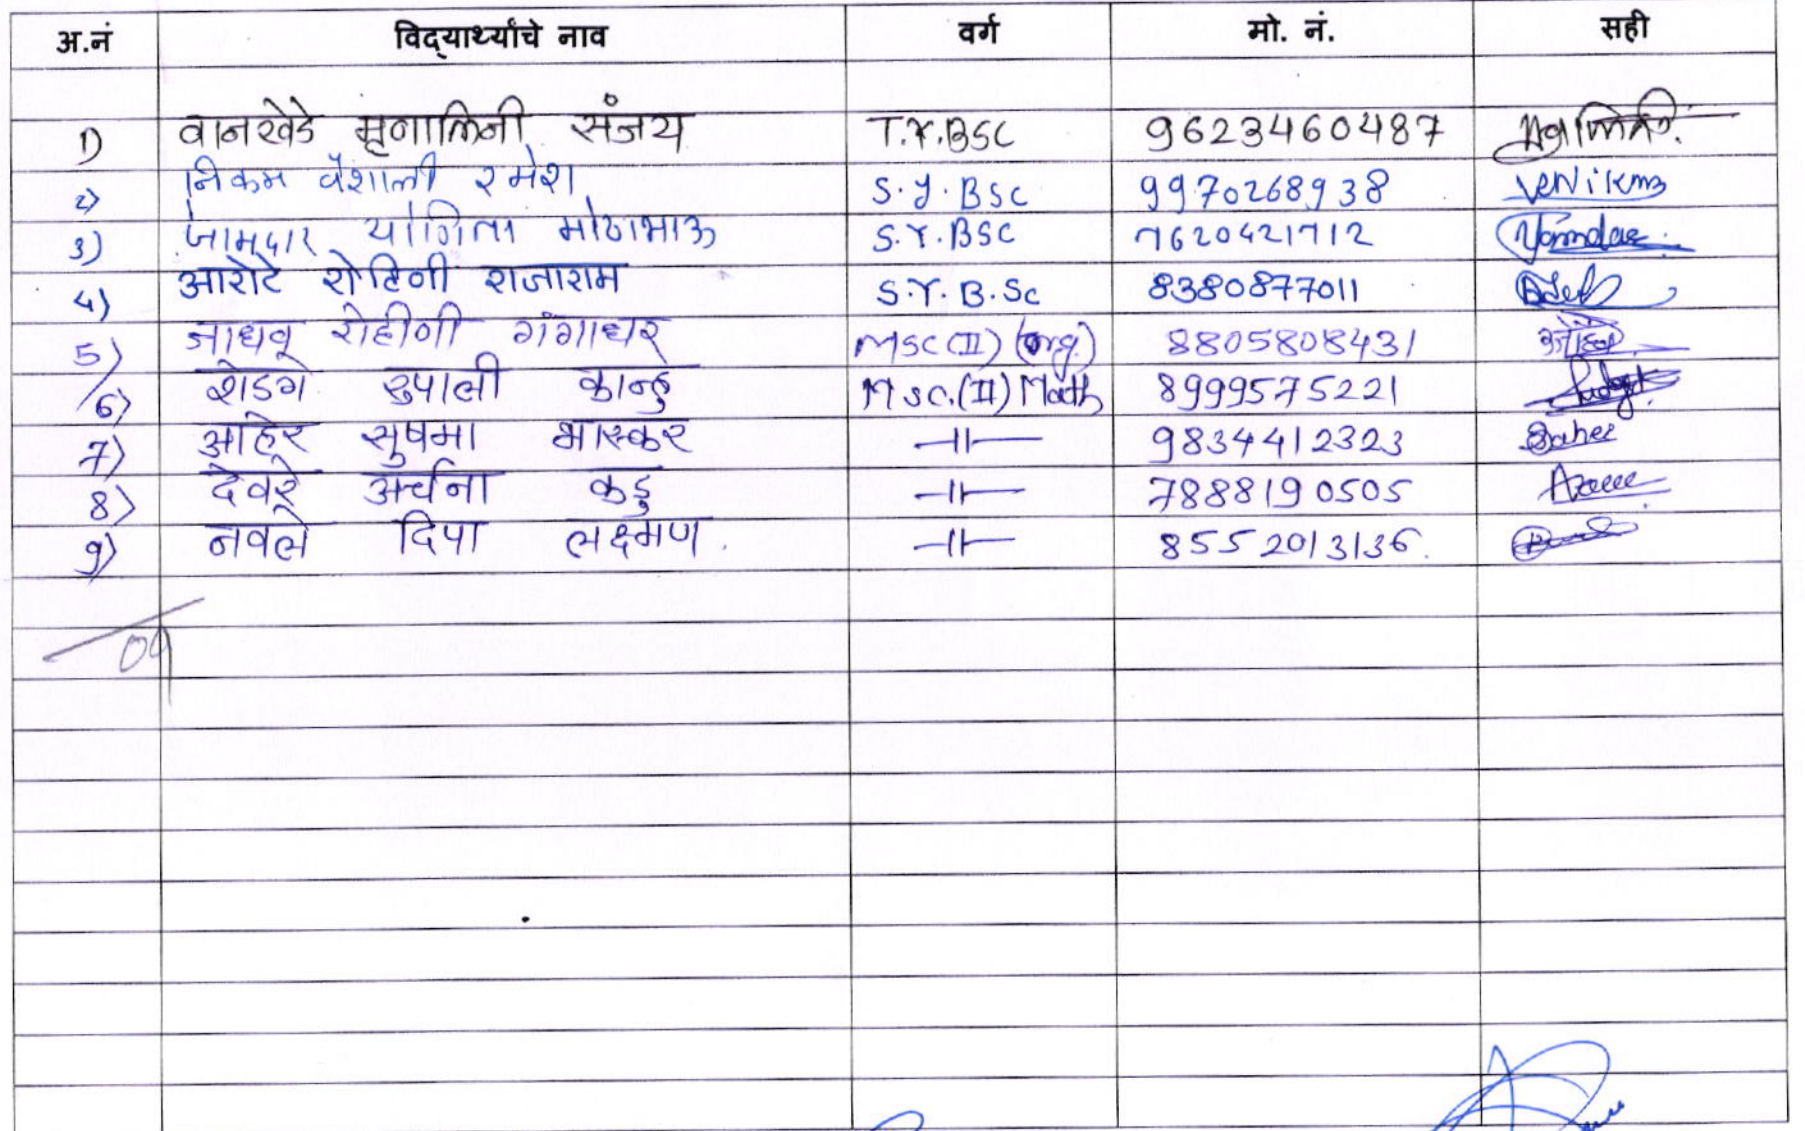 अ.नं विद्यार्थ्यांचे नाव वर्ग मो. नं. सही
1) वानखेडे मृणालिनी संजय T.Y.BSC 9623460487
2) निकम वैशाली रमेश S.Y.BSC 9970268938 VRNikm
3) जामदार योगिता मोठाभाऊ S.Y.BSC 7620421712 YJamdar
4) आरोटे रोहिणी राजाराम S.Y.B.Sc 8380877011
5) जाधव रोहीणी गंगाधर MSC(II) (org.) 8805808431
6) शेडगे रुपाली कान्हु M.sc.(II) Math 8999575221
7) आहेर सुषमा भास्कर -॥- 9834412323 Saher
8) देवरे अर्चना कडु -॥- 7888190505
9) नवले दिपा लक्ष्मण. -॥- 8552013136.
09